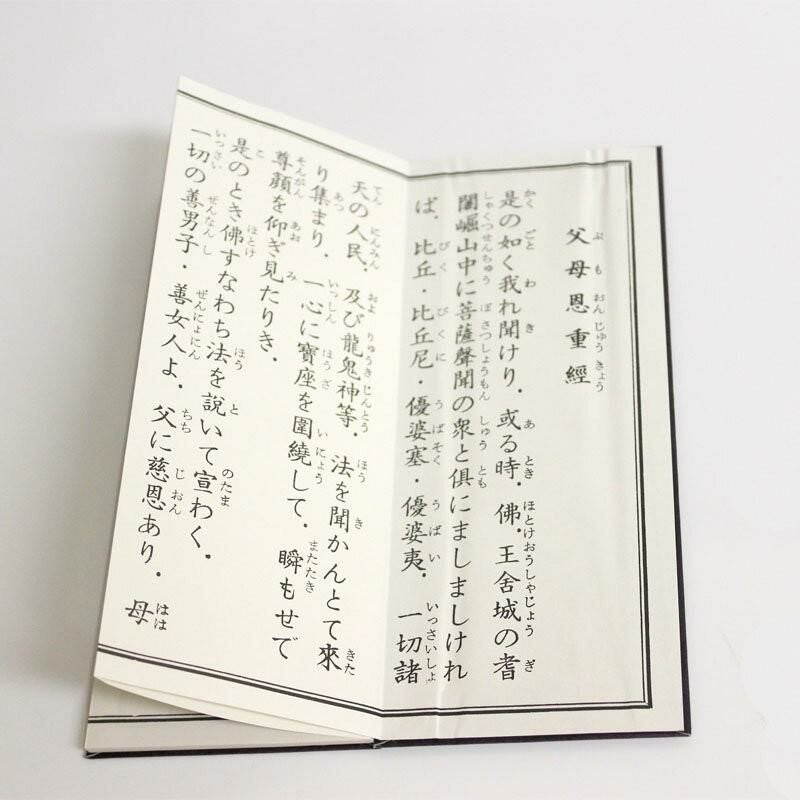 父母恩重經
是の如く我れ聞けり．或る時．佛．王舍城の耆
闍崛山中に菩薩聲聞の衆と俱にましましけれ
ば．比丘・比丘尼・優婆塞・優婆夷．一切諸
天の人民．及び龍鬼神等．法を聞かんとて來
り集まり．一心に寶座を圍繞して．瞬もせで
尊顔を仰ぎ見たりき．
是のとき佛すなわち法を說いて宣わく．
一切の善男子・善女人よ．父に慈恩あり．母